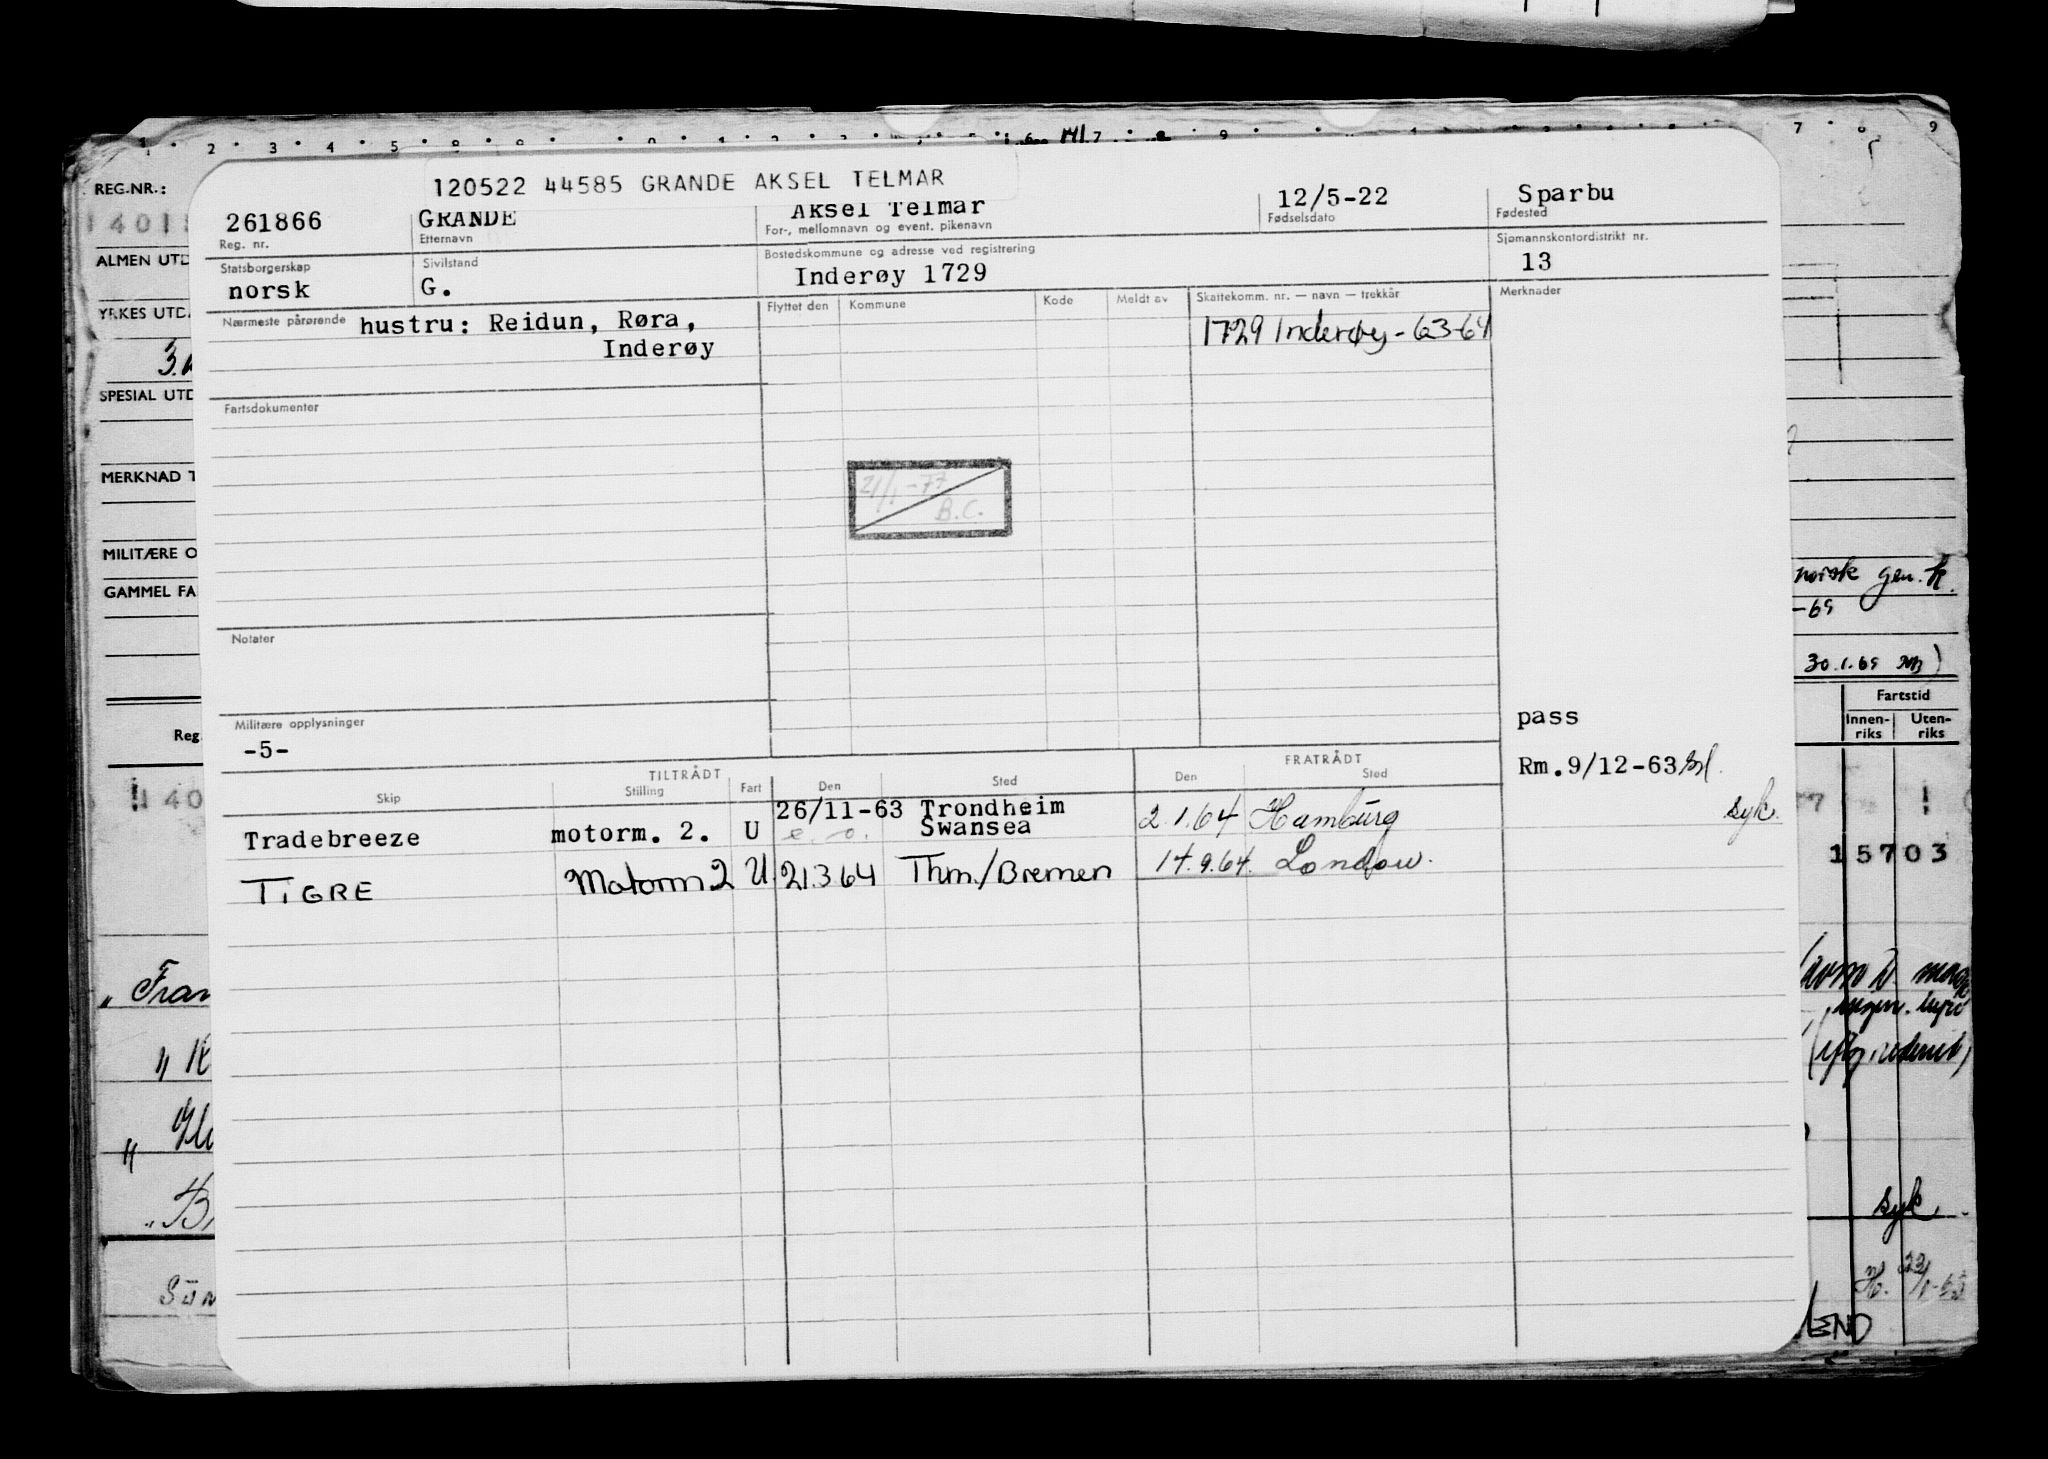 REG.NR.:
ALMEN UTD
YRKES UTDA
SPESIAL UTD
MERKNAD T
MILITÆRE O
GAMMEL FA
Reg.
120522 44585 GRANDE AKSEL TELMAR
261866 GRANDE Aksel Telmar 12/5-22 Sparbu
Reg. nr. Etternavn For-, mellomnavn og event. pikenavn Fødselsdato Fødested
Statsborgerskap Sivilstand Bostedskommune og adresse ved registrering Sjømannskontordistrikt nr.
norsk G. Inderøy 1729 13
Nærmeste pårørende hustru: Reidun, Røra,
Inderøy
Flyttet den Kommune Kode Meldt av Skattekomm. nr. — navn — trekkår Merknader
1729 Inderøy - 63-64
Fartsdokumenter
21/1-77
B.C.
Notater
Militære opplysninger
-5-
pass
Rm.9/12-63
TILTRÅDT FRATRÅDT
Skip Stilling Fart Den Sted Den Sted
26/11-63 Trondheim
Tradebreeze motorm. 2. U e. o. Swansea 2.1.64 Hamburg syk.
TIGRE Motorm 2 U 21.3 64 Thm./Bremen 14.9.64. London.
norsk gen. k.
-69
30.1.69
Fartstid
Innen-
riks
Uten-
riks
15703
syk.